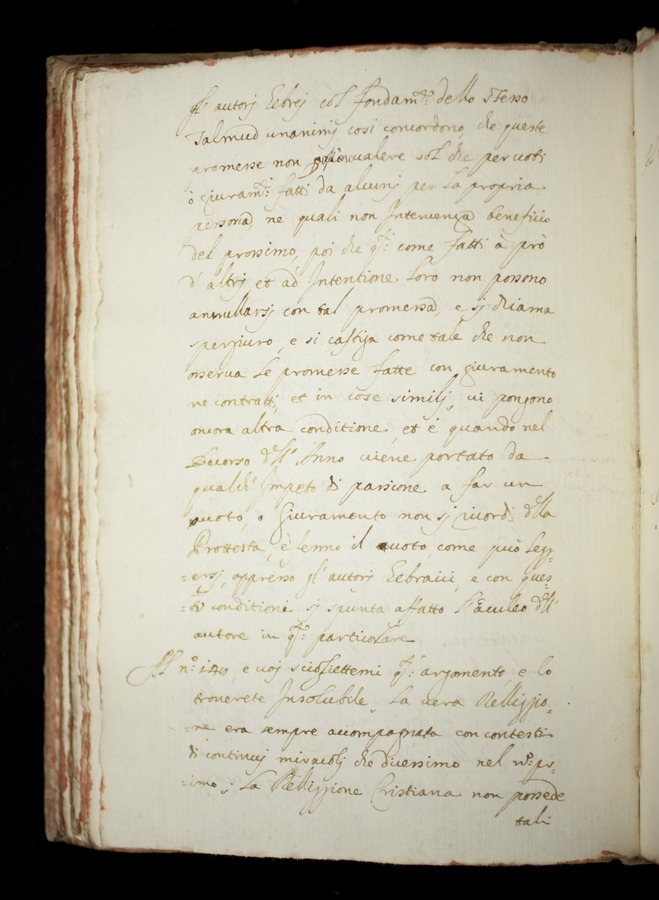 gl' autorj Ebrej col fondam:to dello stesso
Talmud unanimj così concordono, che queste
promesse non valere sol che per voti
ò giuram:ti fatti da alcunj per la propria
persona, ne quali non Interuenga beneficio
del prossimo, poi che q:ti come fatti à prò
d' altrj et ad Intentione loro non possono
annullarsj con tal promessa, e sj chiama
sperjiuro, e si castiga come tale che non
osserua le promesse fatte con giuramento
ne contratti, et in cose similj, ui pongono
ancora altra conditione, et è quando nel
Decorso dell' Anno uiene portato da
qualch' Impeto di passione a far un
uoto, o Giuramento non sj ricordi della
Prottesta, è fermo il uoto, come può legg=
=ersj, appresso gl' autorj Eebraici, e con ques=
=te conditioni sj spunta affatto l'aculeo dell'
autore in q:to particolare
Al n:o 140, e uoj scogliettemi q:to argomento, e lo
trouerete Insolubile, La uera Relliggio=
=ne era sempre accompagnata con contesti
di continuj miracolj che dicessimo nel n:o pr=
=imo; La Relliggione Cristiana non possede
tali